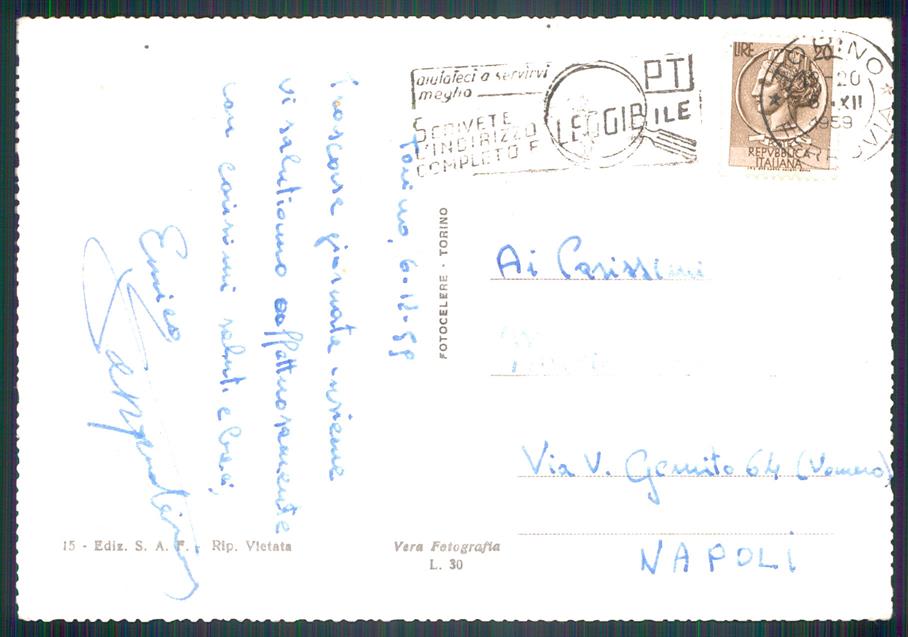 aiutateci a servirvi
meglio
PT
SCRIVETE
L'INDIRIZZO
COMPLETO E
LEGGIBILE
LIRE 20
REPVBBLICA
ITALIANA
TORINO
FERROVIA
XII
1959
Torino, 6-12-59
Trascorse giornate insieme
vi salutiamo affettuosamente
con carissimi saluti e baci,
Enrico
FOTOCELERE - TORINO
Ai Carissimi
Via V. Gemito 64 (Vomero)
NAPOLI
15 - Ediz. S. A. F. - Rip. Vietata
Vera Fotografia
L. 30